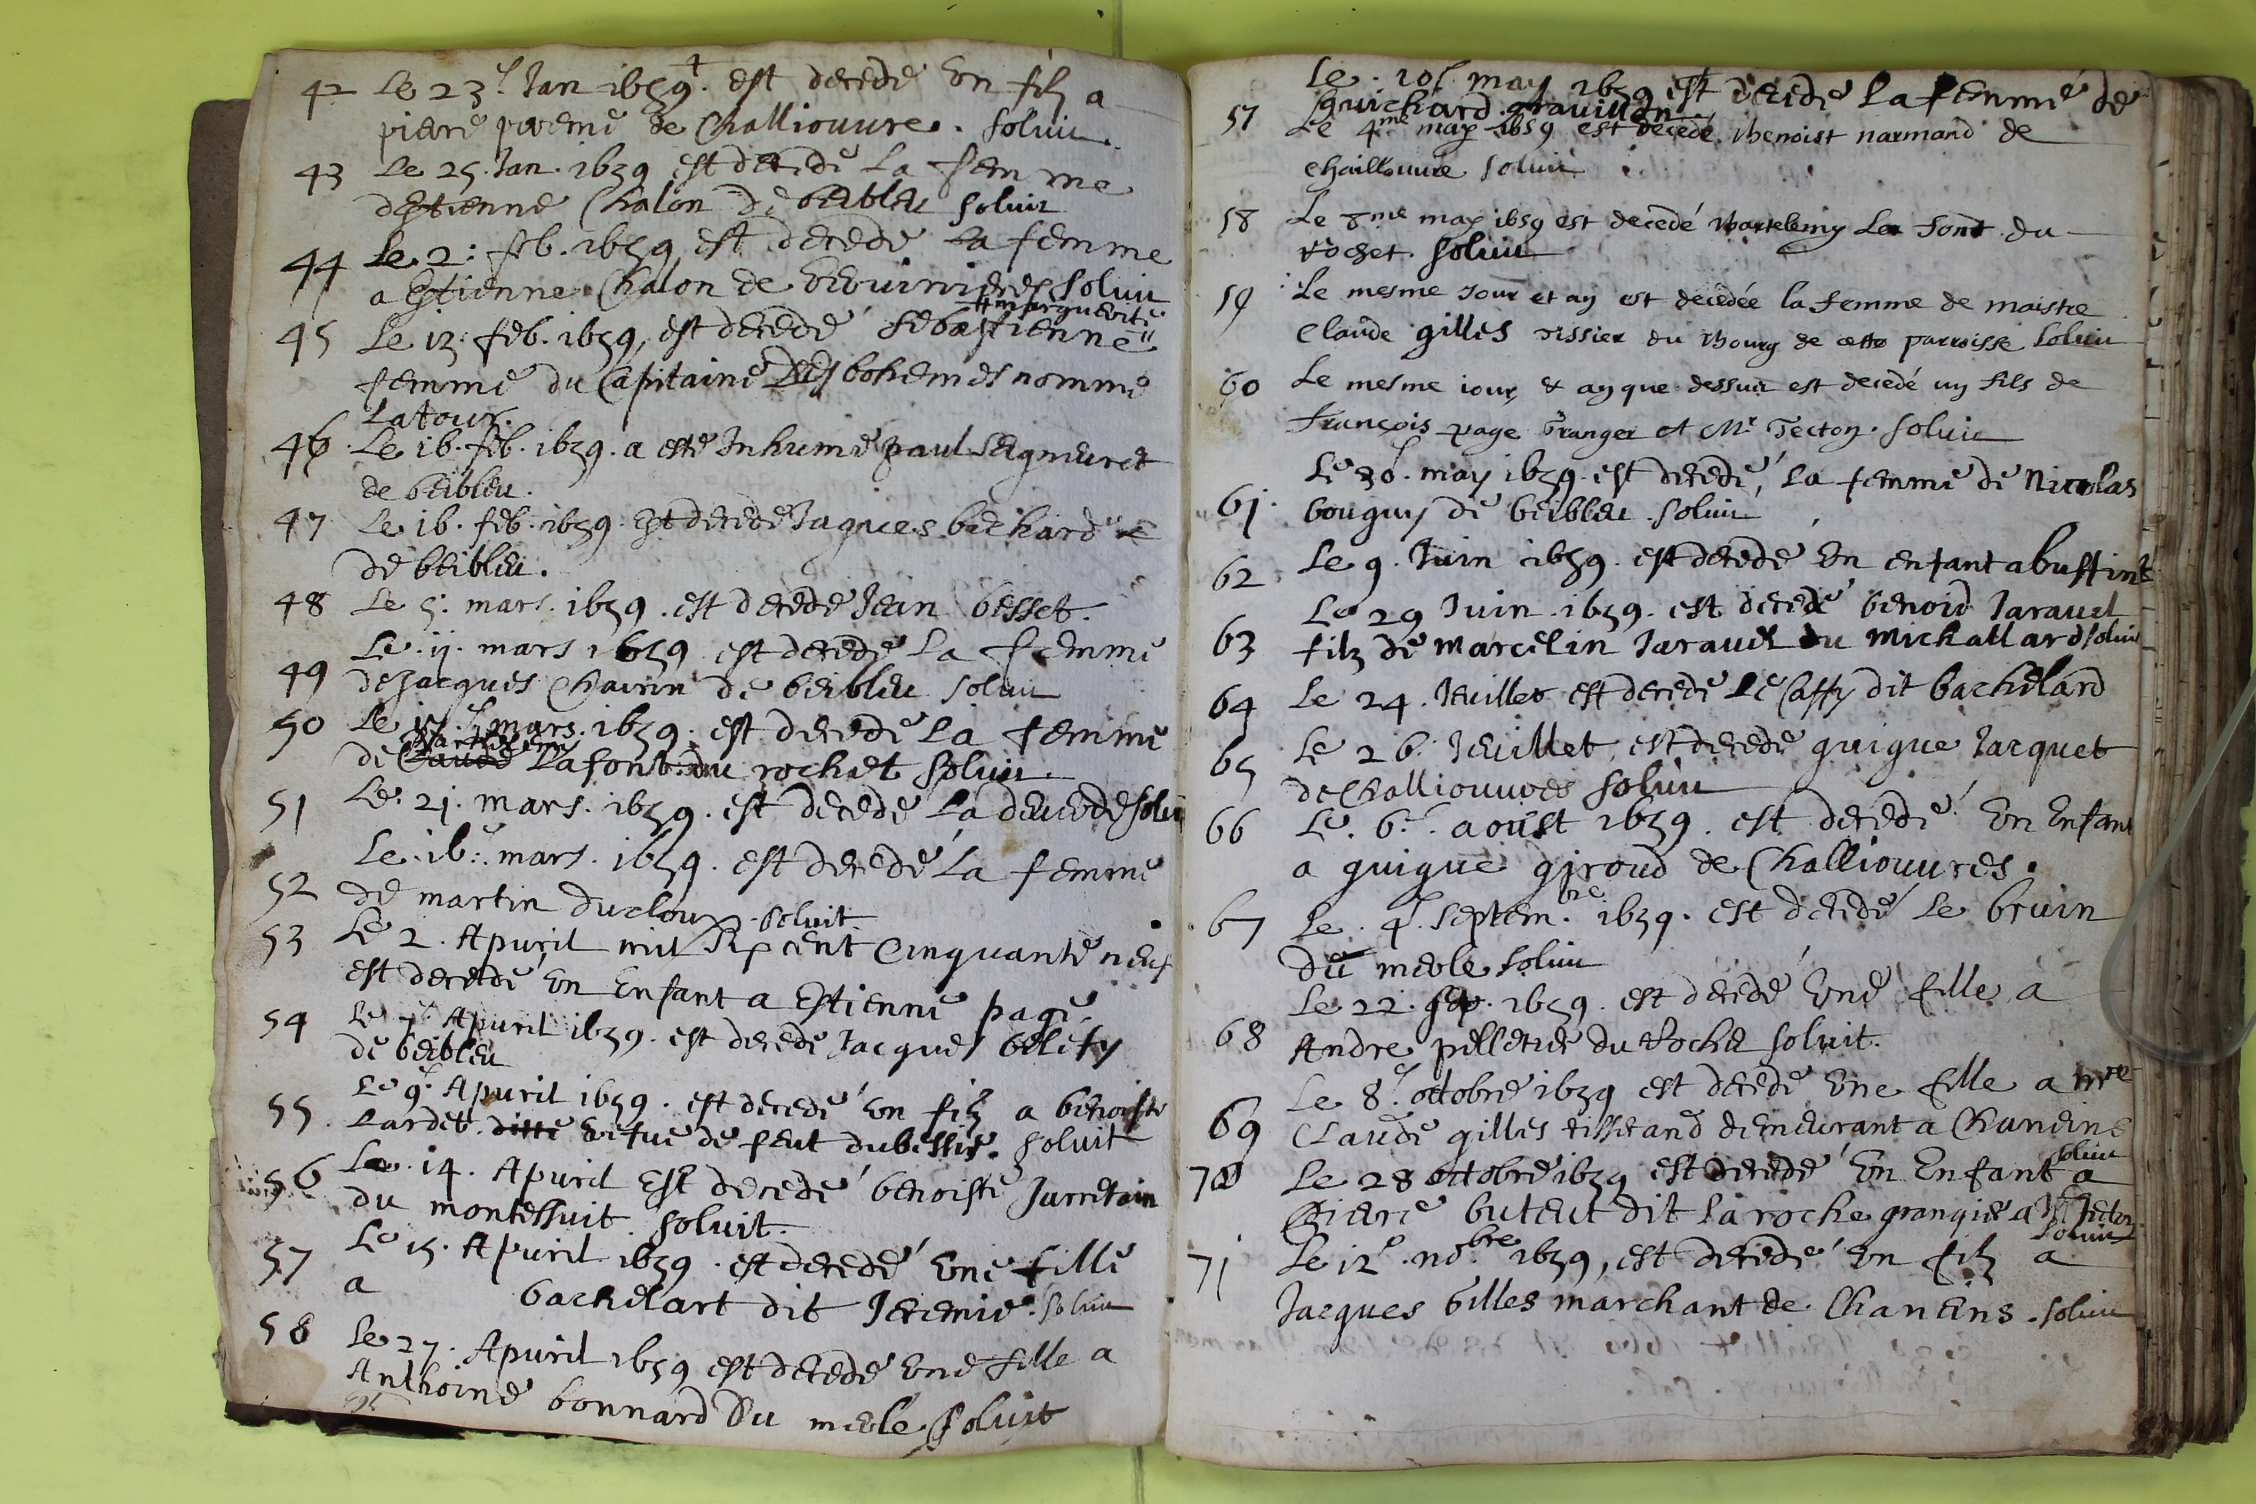 42 Le 23. Jan 1659. est decede un filz a
pierre preme de Challiouvre. soluit.
43 Le 25. Jan. 1659 est decede la femme
destienne Chalon de beibleu soluit
44 Le 2. feb. 1659 est decede la femme
a Estienne Chalon de soluit
marguerite
45 Le 13. feb. 1659, est decede sebastienne
femme du Capitaine des bohemes nomme
latour.
46 Le 16. feb. 1659. a este Inhume paul seigneuret
de beibleu.
47 Le 16. feb. 1659. Est decede Jaques bechard
de beibleu.
48 Le 5. mars. 1659. est decede Jean besset.
49 Le 11. mars 1659 est decede la femme
de Jacques Chavin de beibleu soluit
50 Le mars. 1659. est decede la femme
de lafont du rochet soluit.
51 Le 21. mars. 1659. est decede la soluit
52 Le 16. mars. 1659. est decede la femme
de martin ducloux. soluit
53 Le 2. Apuril mil six cent cinquante neuf
est decede un Enfant a Estienne page
54 Le 7 Apuril 1659. est decede Jacques
de beibleu
55. Le 9. Apuril 1659. est decede un filz a benoiste
lardet ditte vefve de feut dubessis. soluit
56 Le. 14. Apuril Est decede benoiste Jurretain
du montessuit. soluit.
57 Le 15. Apuril 1659. est decede une fille
a bachelart dit Jeremie. soluit
58 Le 27. Apuril 1659 est decede une fille a
Anthoine bonnard du meole soluit
Le. 10. may 1659 est decede la femme de
guichard gravillon
57 Le 4me may 1659 est decedé Benoist narmand de
Chaillouvre soluit
58 Le 8me may 1659 est decedé Bartelemy La Font du
rochet. soluit
59 Le mesme Jour et an est decedée la femme de maistre
Claude gilles tissier du Bourg de cette parroisse soluit
60 Le mesme iour & an que dessus est decedé un fils de
françois page Granger a Mr Tecton. soluit
61. Le 30. may 1659. est decede, la femme de Nicolas
bouguis de beibleu. soluit
62 Le 9. Juin 1659. est decede un enfant a buffint
63 Le 29 Juin. 1659. est decede benoid Jaravel
filz de marcelin Jaravel du michallard soluit
64 Le 24. Jeuillet est decede le dit bachelard
65 Le 26. Jeuillet est decede guigue Jacquet
de Challiouvres soluit
66 Le. 6. aoust 1659. est decede un Enfant
a guigue giroud de Challiouvres.
67 Le. 4. septem.bre 1659. est decede le bruin
du meole soluit
68 Le 22. sep. 1659. est decede une fille a
Andre pelletier du Roche soluit.
69 Le 8. octobre 1659 est decede une fille a mre
Claude gilles tisserand demeurant a Chaneins
soluit
70 Le 28 octobre 1659 est decede un Enfant a
Pierre buteut dit la roche grangier a
soluit
71 Le 12. no.bre 1659, est decede un filz a
Jacques Gilles marchant de Chaneins. soluit